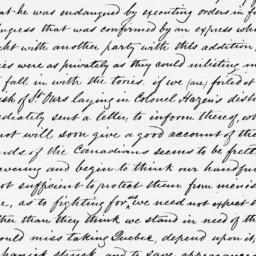 at he was endangered by executing orders in f
ngress that was confirmed by an express wh
ght with another party with this addition
ies were as privately as they could inlisting m
fall in with the tories. if we (are) foiled at
sh of St. Ours laying in Colonel Hazen's dist
diately sent a letter to inform those of, wh
not will soon give a good account of the
nds of the Canadians seems to be frett
avering and begin to think our handful
not sufficient to protect them from minis
e, as to fighting for we need not expect t
ther than they think we stand in need of th
ould miss taking Quebec, depend upon it,
struck, and to save appearance